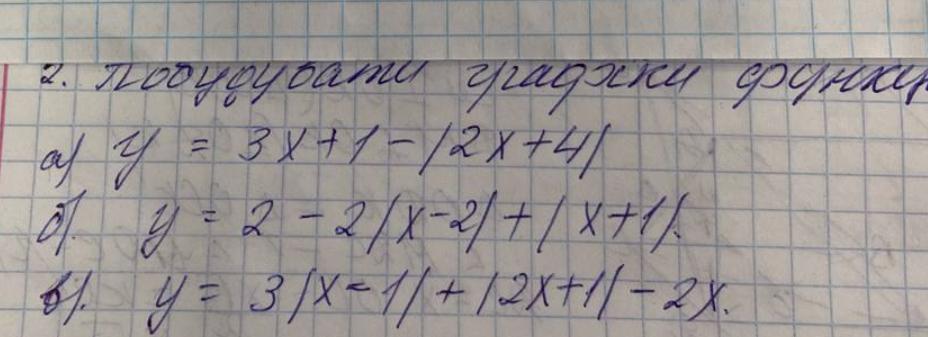 2. Побудувати графіки функц
а) y = 3x+1-|2x+4|
б). y = 2 - 2|x-2|+|x+1|.
в). y = 3|x-1|+|2x+1|-2x.